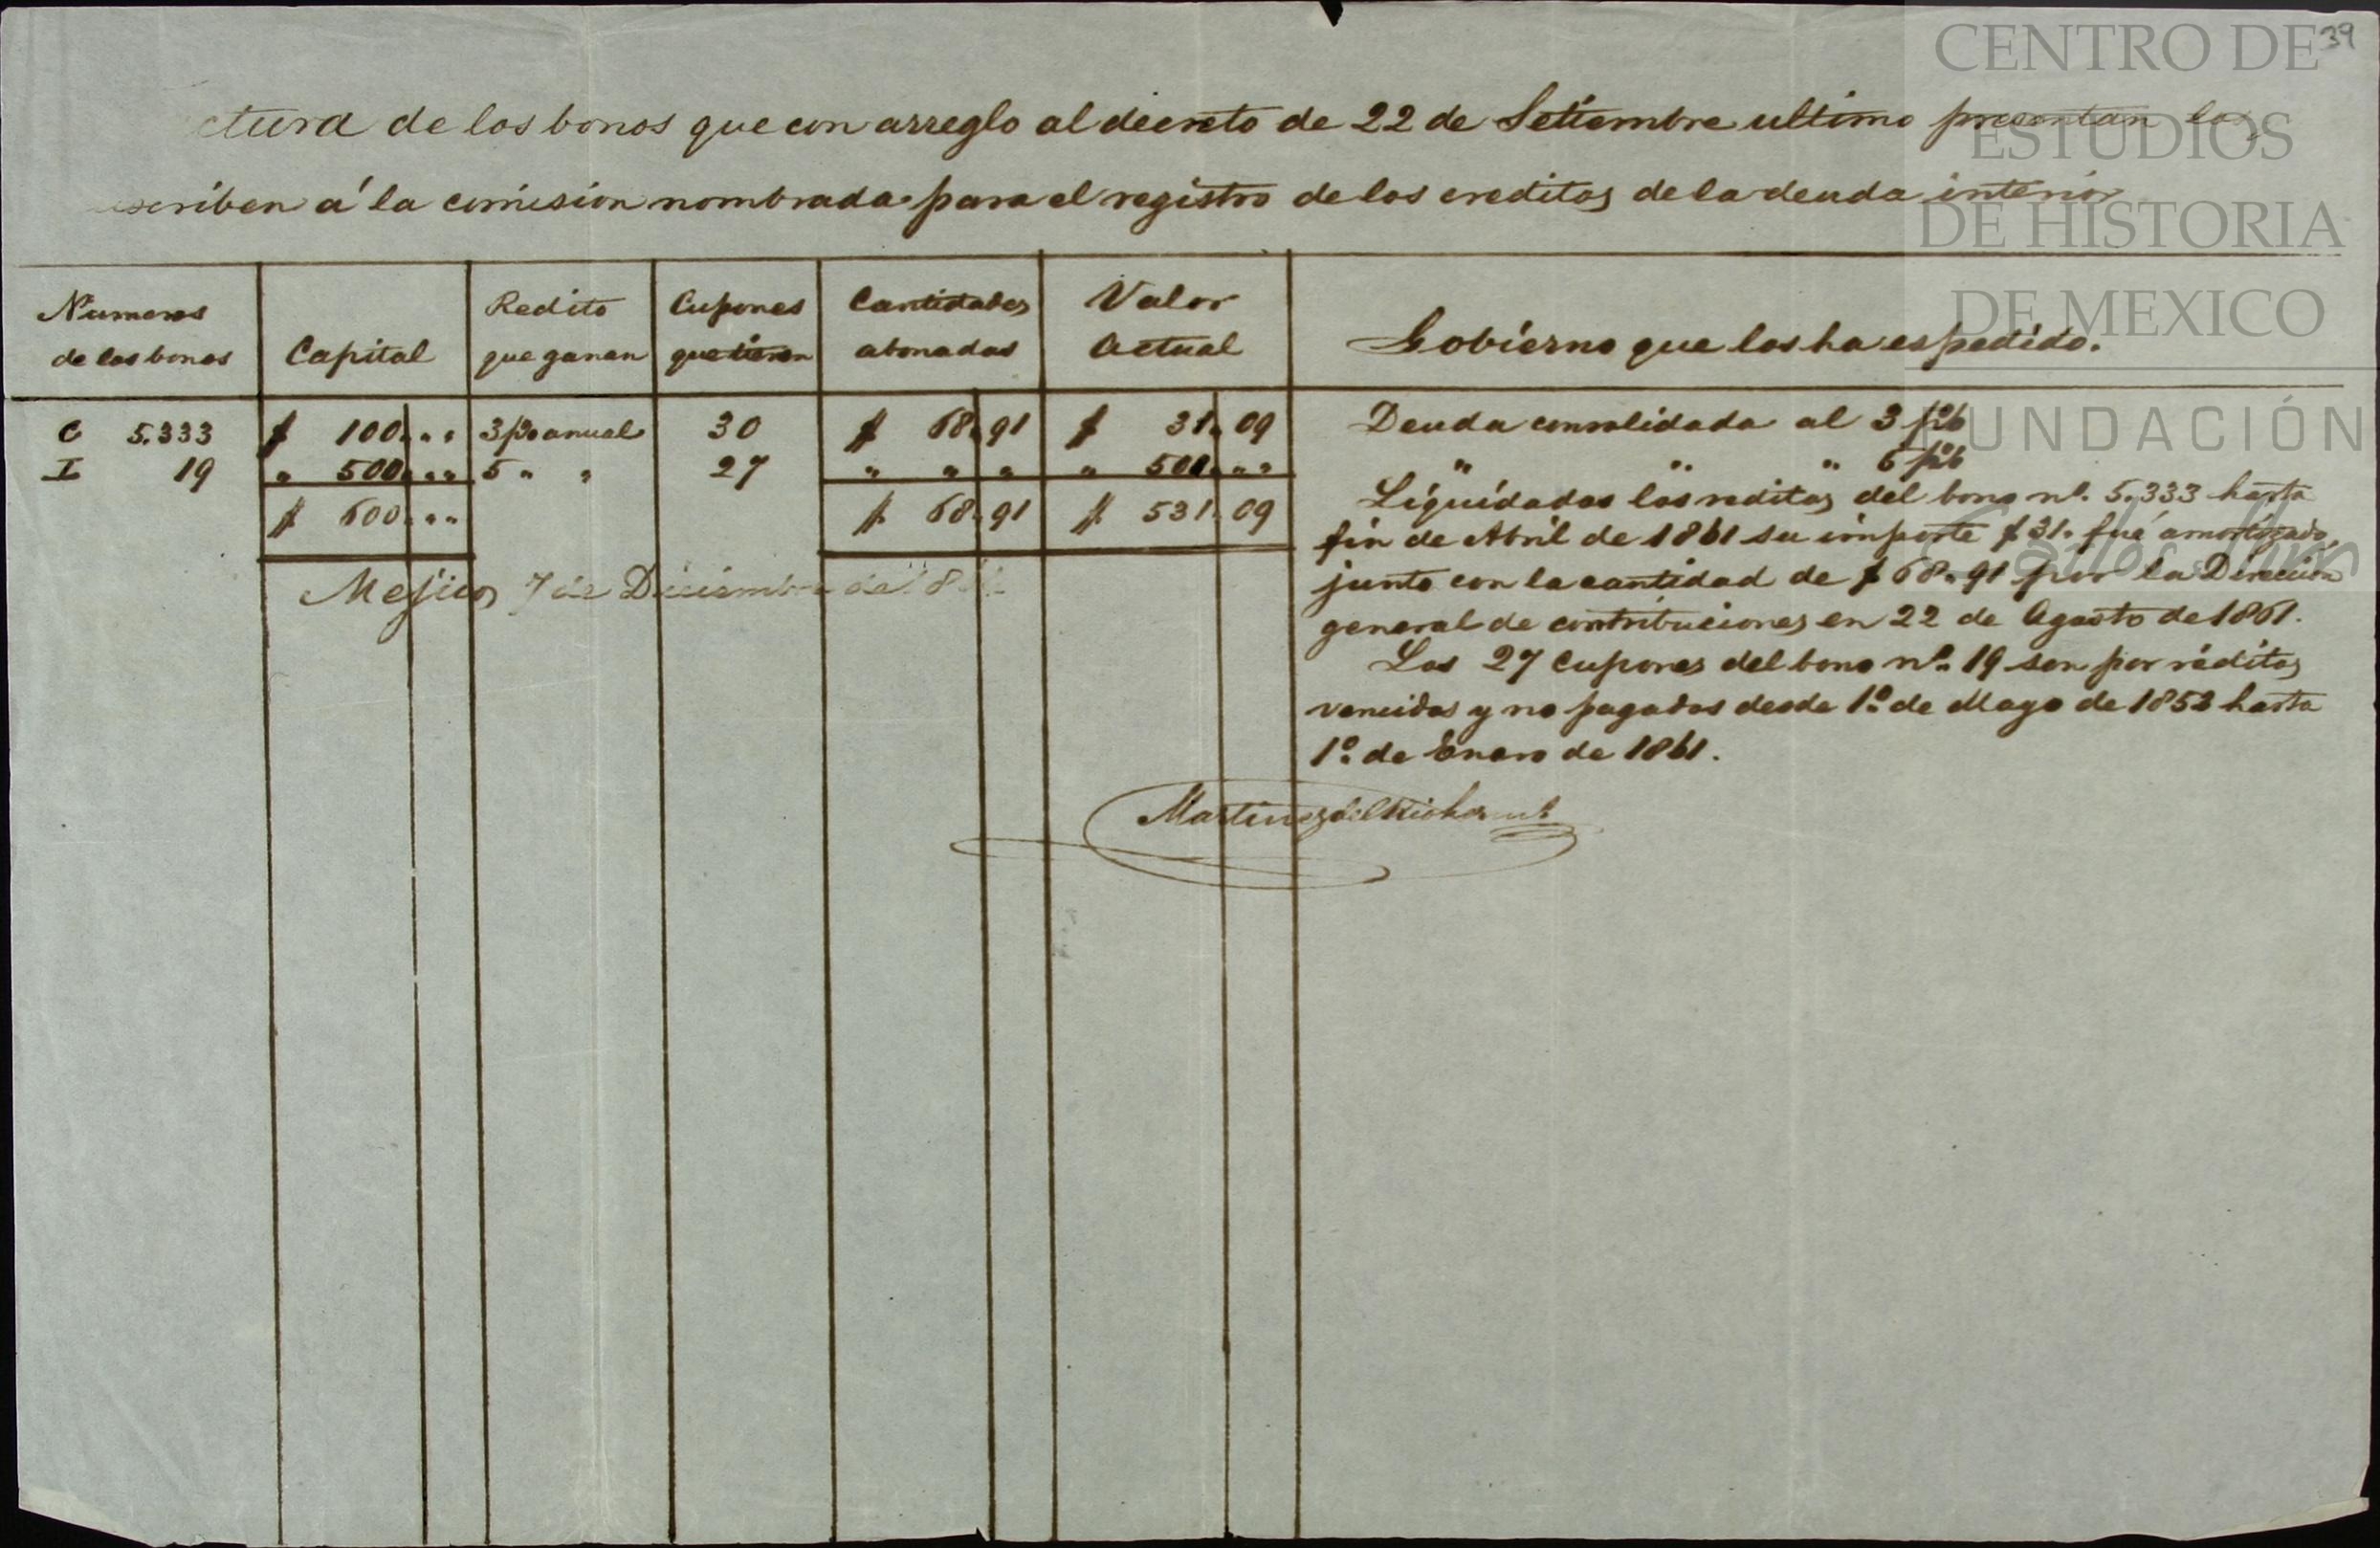 39
ctura de los bonos que con arreglo al decreto de 22 de Setiembre ultimo presentan los
scriben á la comision nombrada para el registro de los creditos de la deuda interior
Numeros de los bonos | Capital | Redito que ganan | Cupones que tienen | Cantidades abonadas | Valor Actual | Gobierno que los ha espedido.
C 5.333 $ 100 " " 3 p% anual 30 $ 68 " 91 $ 31 " 09 Deuda consolidada al 3 p%
I 19 " 500 " " 5 " " 27 " " " " 500 " " " " " 5 p%
$ 600 " " $ 68 " 91 $ 531 " 09
Liquidados los reditos del bono nº. 5.333 hasta
fin de Abril de 1861 su importe $ 31. fué amortizado,
junto con la cantidad de $ 68 " 91 por la Direccion
general de contribuciones en 22 de Agosto de 1861.
Los 27 Cupones del bono nº. 19 son por réditos
vencidos y no pagados desde 1º. de Mayo de 1852 hasta
1º. de Enero de 1861.
Mejico, 7 de Diciembre de 18
Martinez del Rio
CENTRO DE
ESTUDIOS
DE HISTORIA
DE MEXICO
FUNDACIÓN
Carlos Slim